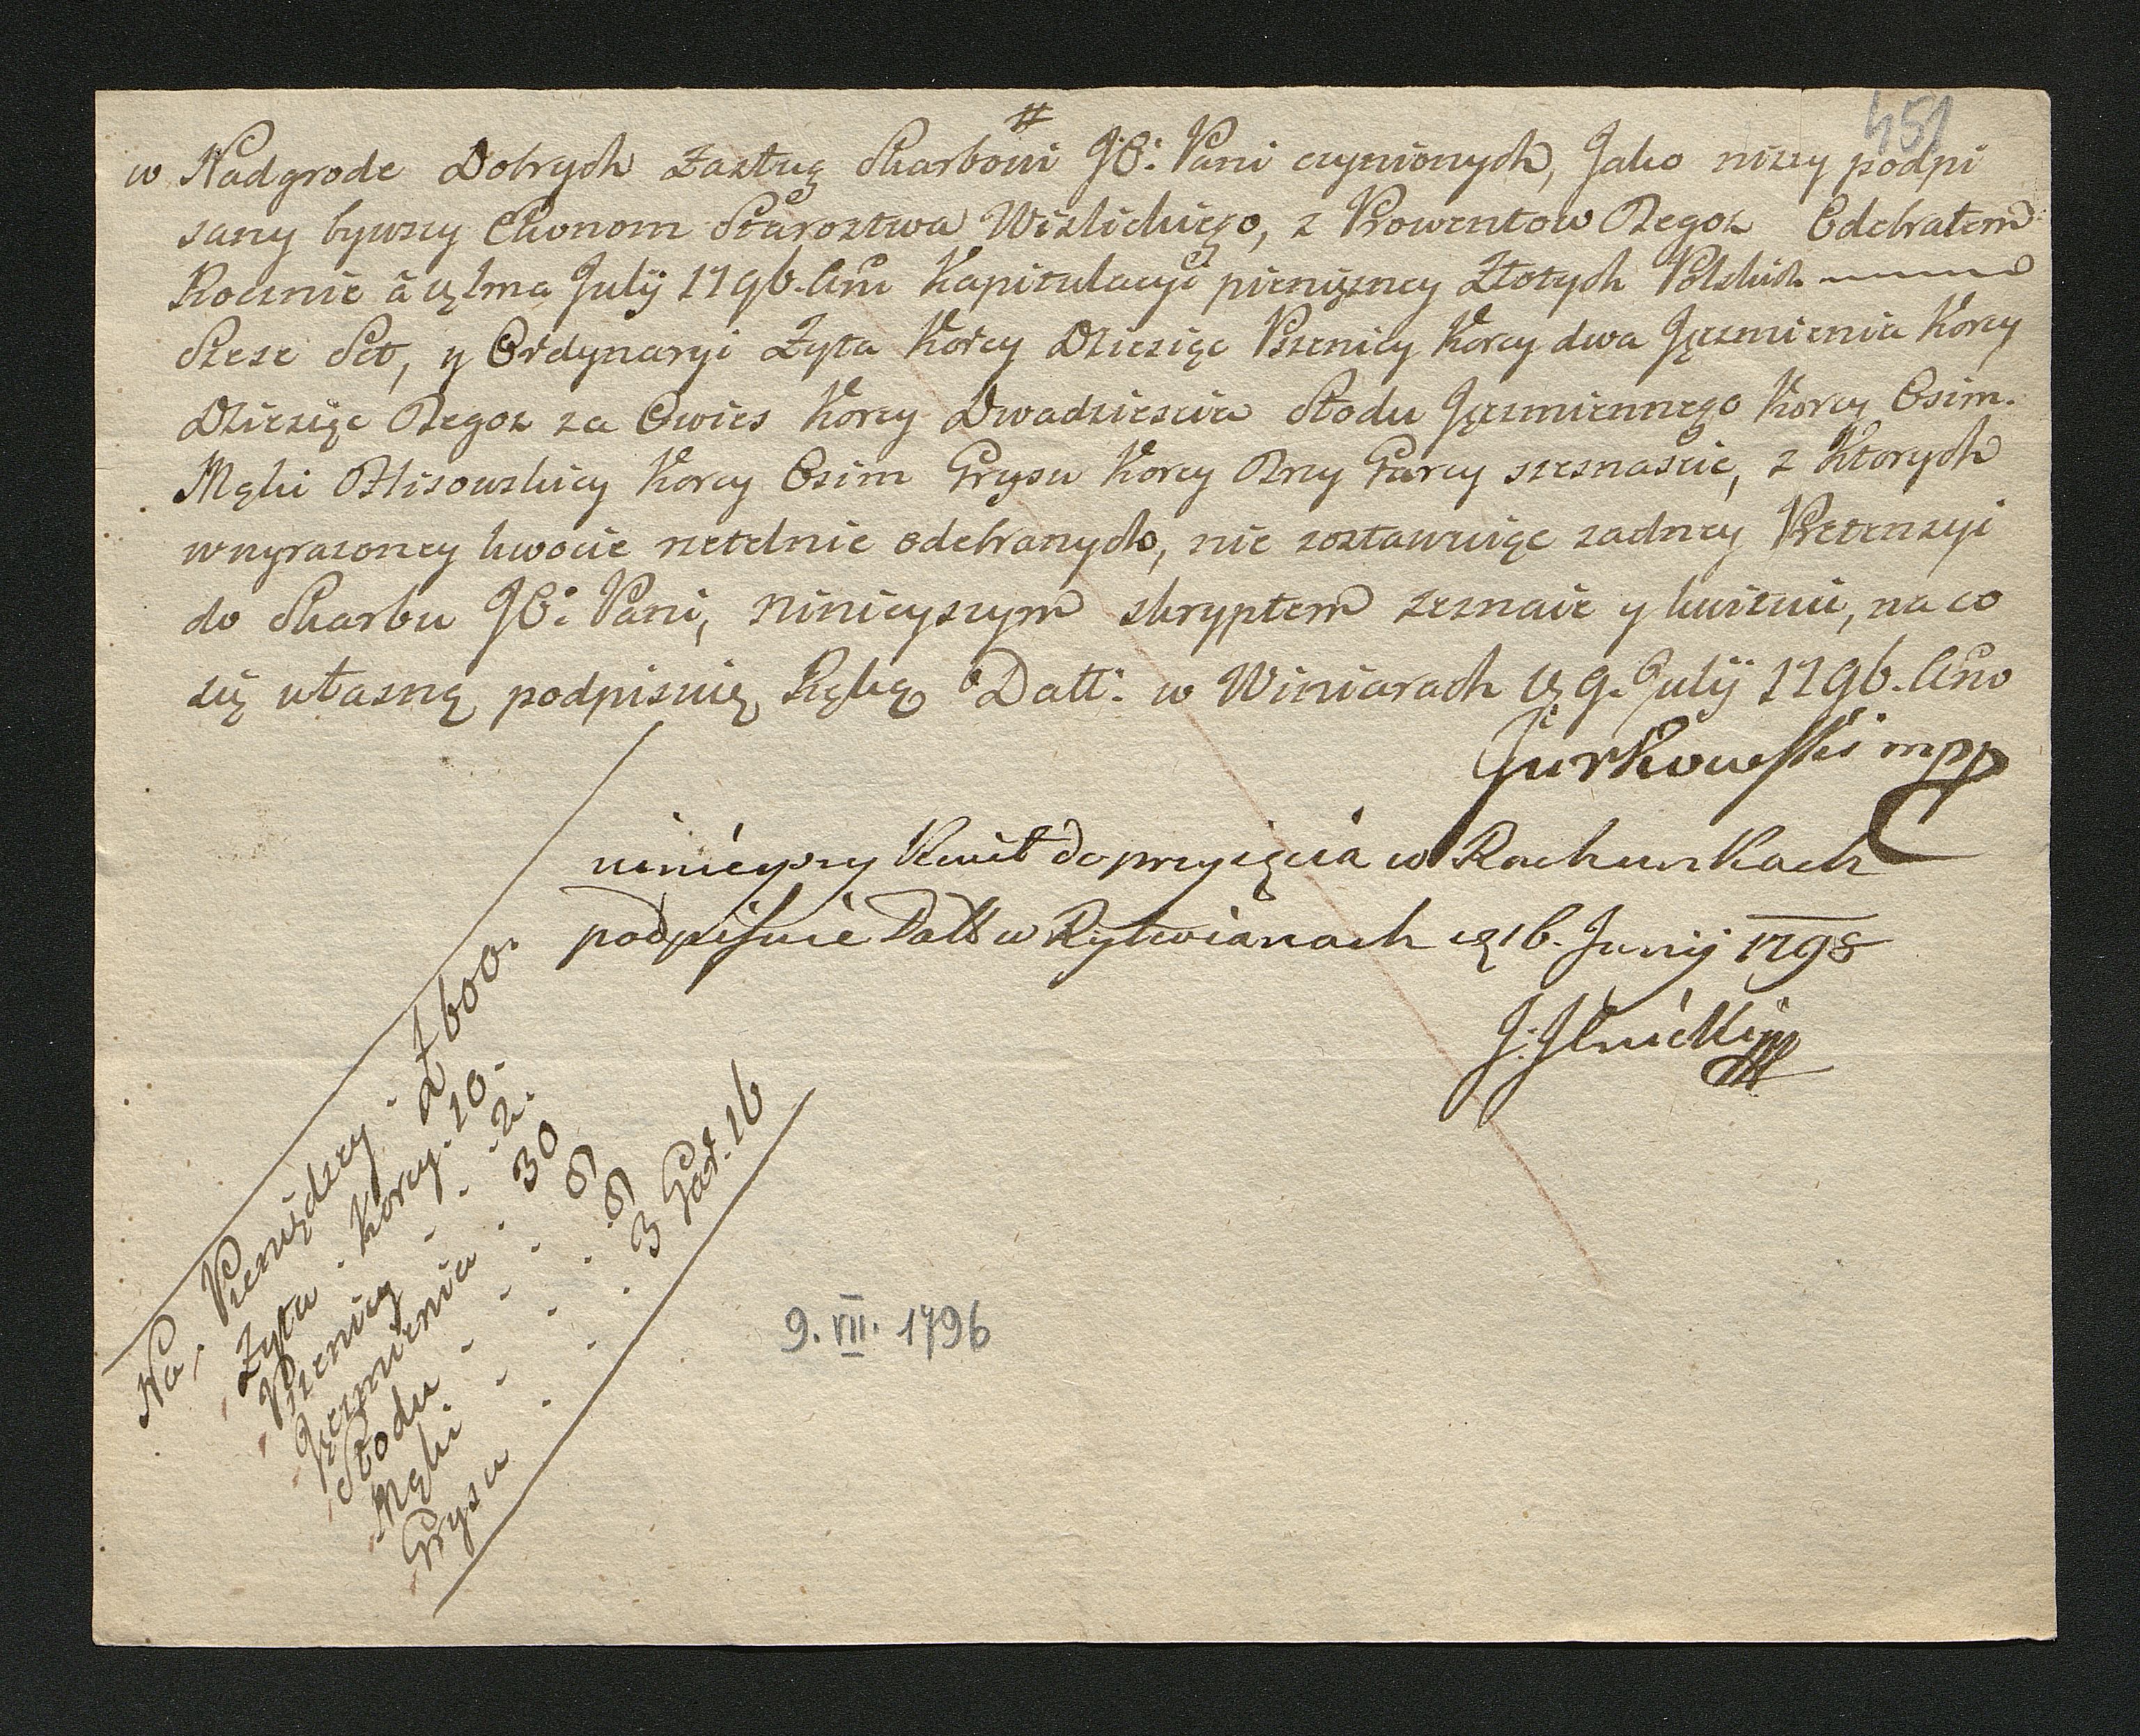 451
#
w Nadgrode Dobrych Zasług Skarbowi JO: Pani czynionych, Jako niżey podpi
sany bywszy Ekonom Starostwa Wiślickiego, z Prowentow Tegoż Odebrałem
Rocznie à 1ma July 1796. Ani Kapitulacyi pieniężney Złotych Polskich
Szesc Set, y Ordynaryi Żyta Korcy Dziesięc Pszenicy Korcy dwa Jęczmienia Korcy
Dziesięc Tegoz za Owies Korcy Dwadziescia Słodu Jęczmiennego Korcy Osim.
Mąki Korcy Osim Grysu Korcy Trzy Garcy szesnaście, z Ktorych
w wyrazoney kwocie rzetelnie odebranych, nie zostawuiąc zadney Pretensyi
do Skarbu JO: Pani, ninieyszym skryptem zeznaie y kwituie, na co
się własną podpisuię Ręką Datt: w Winiarach 9. July 1796. Ano
Jurkowski mpp
ninieyszy Kwit do przyięcia w Rachunkach
podpisuie Datt w Rytwianach 16. Junij 1798
J:
Na, Pieniędzy. Zł 600.
Zyta. Korcy. 10.
Pszenicy - - 2.
Jęczmienia . 30
Słodu - - - 8
Mąki - - - 8
Grysu . . . 3 Gar. 16
9. VII. 1796